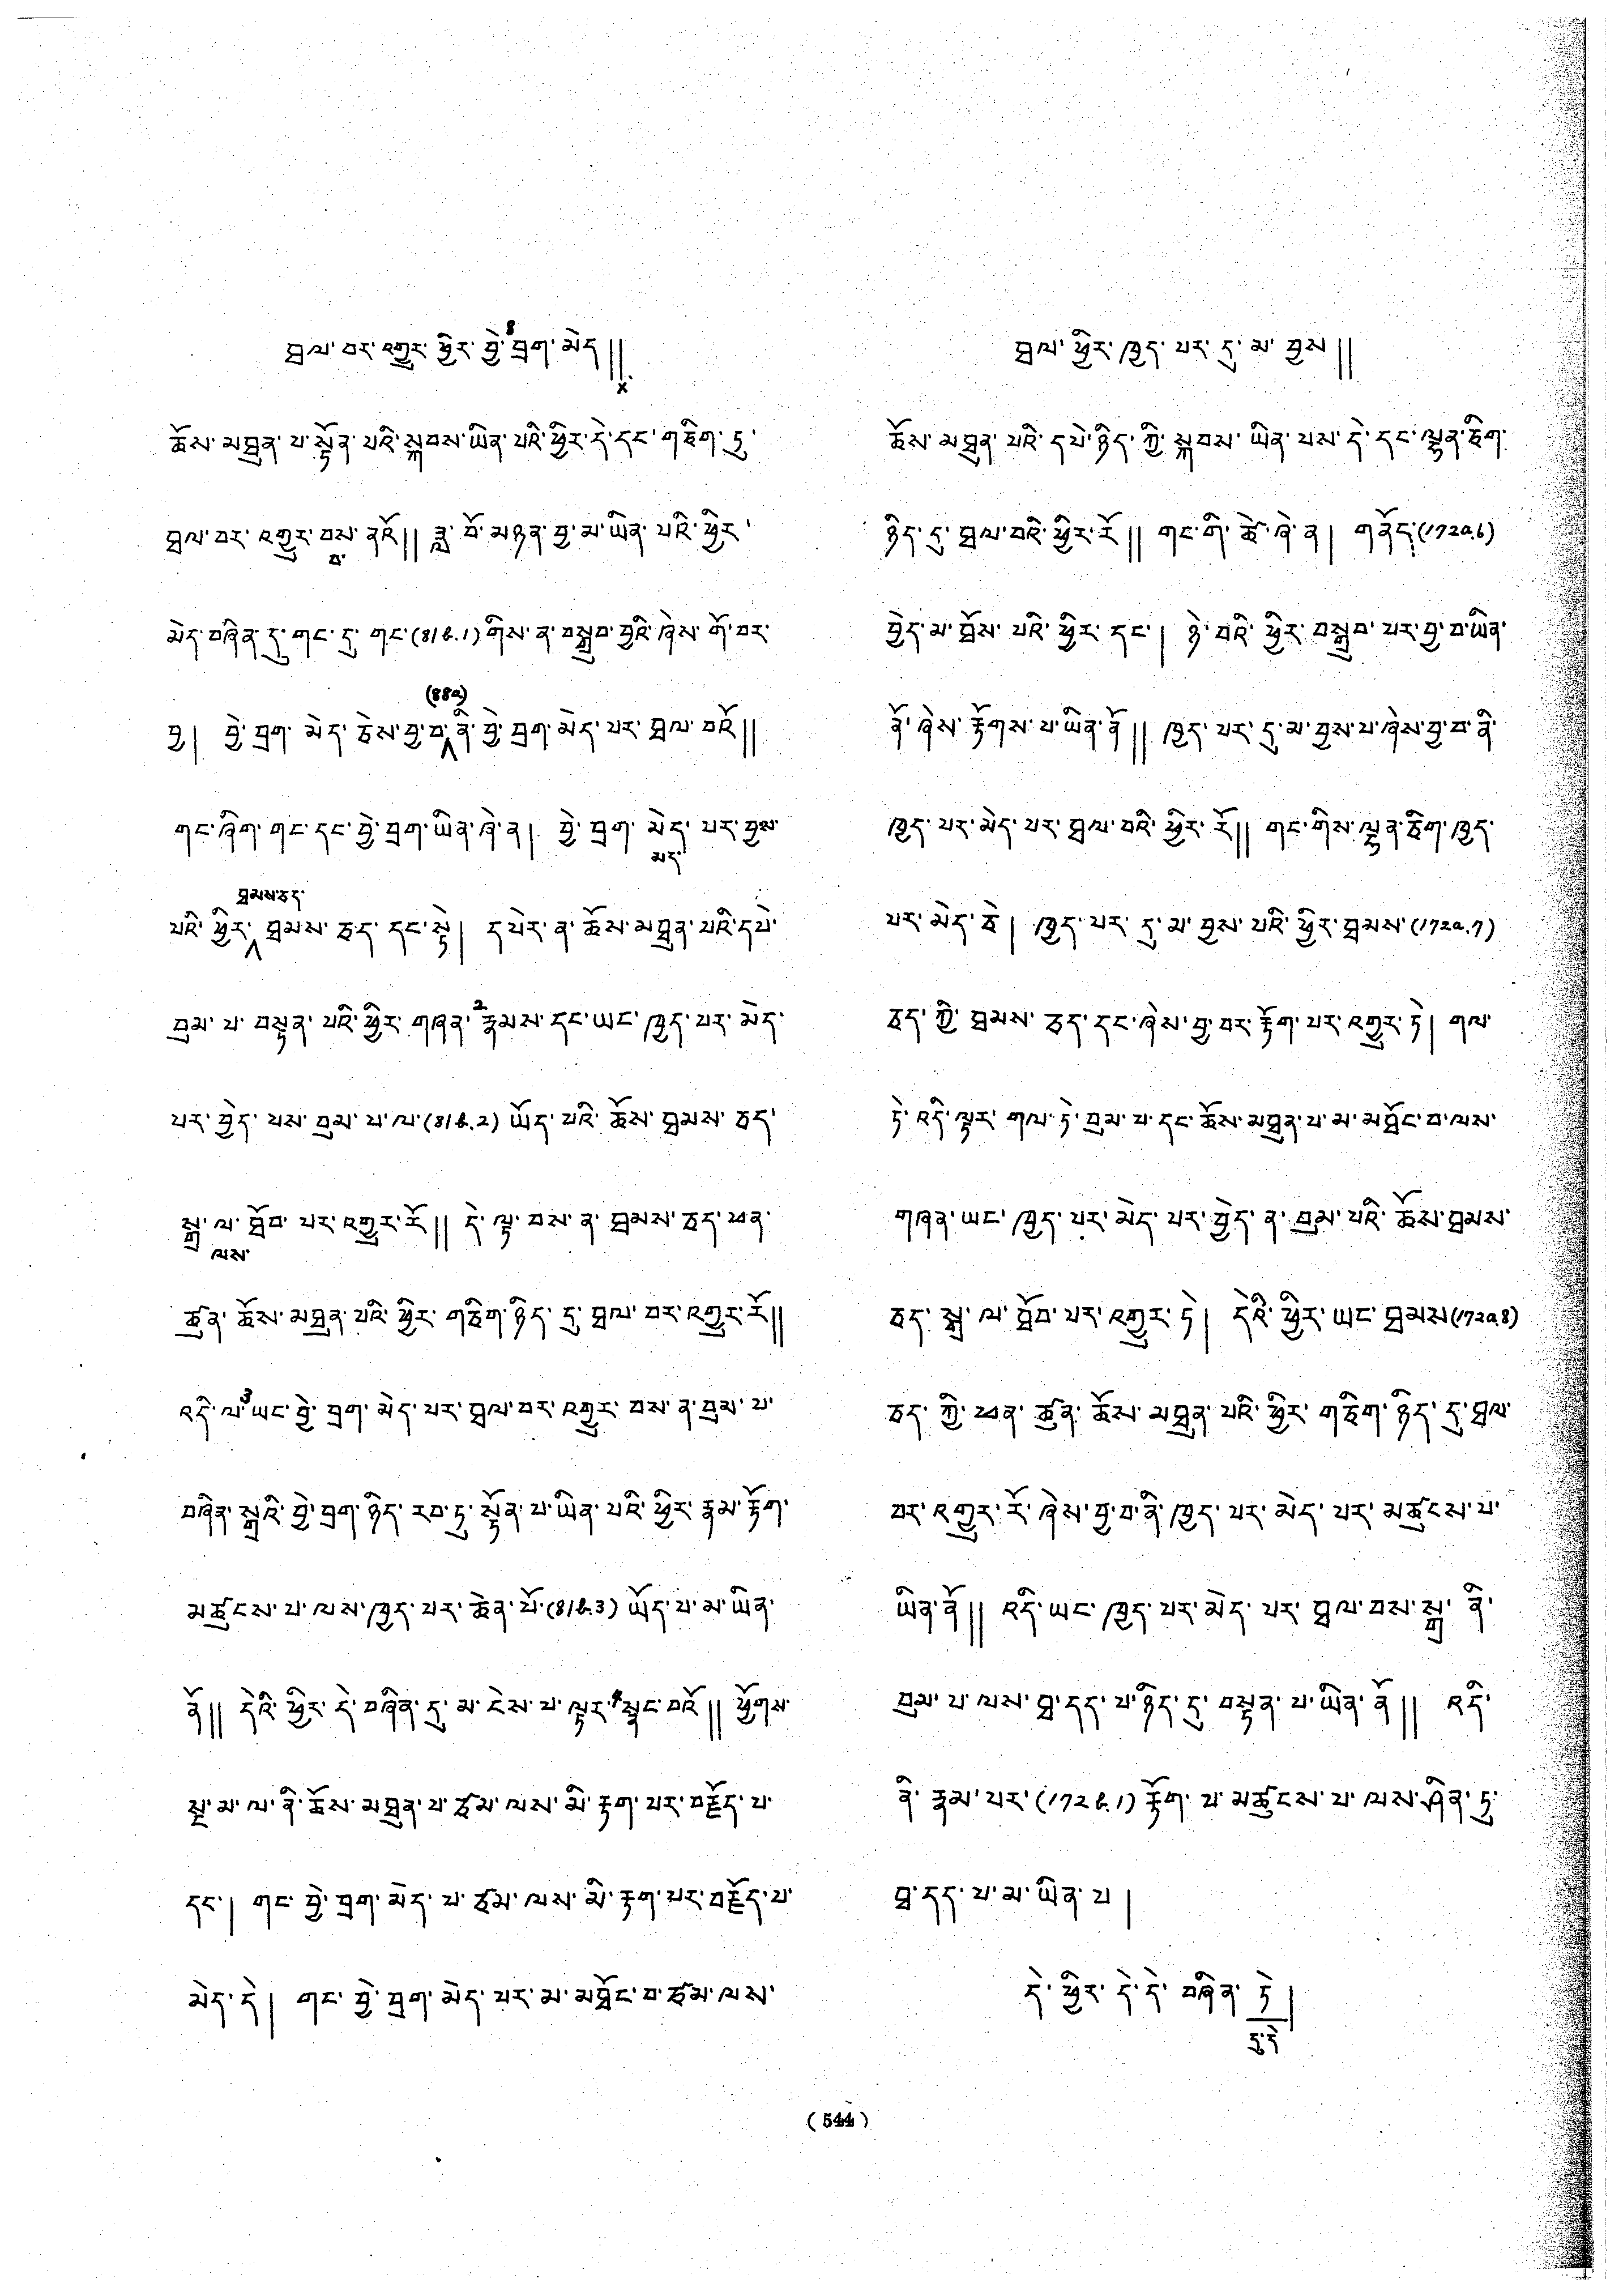 ཐལ་བར་འགྱུར་ཕྱིར་བྱེ་བྲག་མེད༎
ཆོས་མཐུན་པ་སྟོན་པའི་སྐབས་ཡིན་པའི་ཕྱིར་དེ་དང་གཅིག་ཏུ་
ཐལ་བར་འགྱུར་བས་ནའོ༎ སླ་བོ་མཉན་བྱ་མ་ཡིན་པའི་ཕྱིར་
བ་
མེད་བཞིན་དུ་གང་དུ་གང་(81b.1)གིས་ན་བསྒྲུབ་བྱའི་ཞེས་གོ་བར་
(88a)
བྱ། བྱེ་བྲག་མེད་ཅེས་བྱ་བ་ནི་བྱེ་བྲག་མེད་པར་ཐལ་བའོ༎
གང་ཞིག་གང་དང་བྱེ་བྲག་ཡིན་ཞེ་ན། བྱེ་བྲག་མེད་པར་བྱས་
མད་
ཐམས་ཅད་
པའི་ཕྱིར་ཐམས་ཅད་དང་སྟེ། དཔེར་ན་ཆོས་མཐུན་པའི་དཔེ་
བུམ་པ་བསྟན་པའི་ཕྱིར་གཞན་2རྣམས་དང་ཡང་ཁྱད་པར་མེད་
པར་བྱེད་པས་བུམ་པ་ལ་(81b.2)ཡོད་པའི་ཆོས་ཐམས་ཅད་
སྒྲ་ལ་ཐོབ་པར་འགྱུར་རོ༎ དེ་ལྟ་བས་ན་ཐམས་ཅད་ཕན་
ལས་
ཚུན་ཆོས་མཐུན་པའི་ཕྱིར་གཅིག་ཉིད་དུ་ཐལ་བར་འགྱུར་རོ༎
འདི་ལ་3ཡང་བྱེ་བྲག་མེད་པར་ཐལ་བར་འགྱུར་བས་ན་བུམ་པ་
བཞིན་སྒྲའི་བྱེ་བྲག་ཉིད་རབ་ཏུ་སྟོན་པ་ཡིན་པའི་ཕྱིར་རྣམ་རྟོག་
མཚུངས་པ་ལས་ཁྱད་པར་ཆེན་པོ་(81b.3)ཡོད་པ་མ་ཡིན་
ནོ༎ དེའི་ཕྱིར་དེ་བཞིན་དུ་མ་ངེས་པ་ལྟར་སྣང་བའོ༎ ཕྱོགས་
སྔ་མ་ལ་ནི་ཆོས་མཐུན་པ་ཙམ་ལས་མི་རྟག་པར་བརྗོད་པ་
དང་། གང་བྱེ་བྲག་མེད་པ་ཙམ་ལས་མི་རྟག་པར་བརྗོད་པ་
མེད་དེ། གང་བྱེ་བྲག་མེད་པར་མ་མཐོང་བ་ཙམ་ལས་
ཐལ་ཕྱིར་ཁྱད་པར་དུ་མ་བྱས༎
ཆོས་མཐུན་པའི་དཔེ་ཉིད་ཀྱི་སྐབས་ཡིན་པས་དེ་དང་ལྷན་ཅིག་
ཉིད་དུ་ཐལ་བའི་ཕྱིར་རོ༎ གང་གི་ཚེ་ཞེ་ན། གནོད་(172a.6)
བྱེད་མ་ཐོས་པའི་ཕྱིར་དང་། ཉེ་བའི་ཕྱིར་བསྒྲུབ་པར་བྱ་བ་ཡིན་
ནོ་ཞེས་རྟོགས་པ་ཡིན་ནོ༎ ཁྱད་པར་དུ་མ་བྱས་པ་ཞེས་བྱ་བ་ནི་
ཁྱད་པར་མེད་པར་ཐལ་བའི་ཕྱིར་རོ༎ གང་གིས་ལྷན་ཅིག་ཁྱད་
པར་མེད་ཅེ། ཁྱད་པར་དུ་མ་བྱས་པའི་ཕྱིར་ཐམས་(172a.7)
ཅད་ཀྱི་ཐམས་ཅད་དང་ཞེས་བྱ་བར་རྟོག་པར་འགྱུར་ཏེ། གལ་
ཏེ་འདི་ལྟར་གལ་ཏེ་བུམ་པ་དང་ཆོས་མཐུན་པ་མ་མཐོང་བ་ལས་
གཞན་ཡང་ཁྱད་པར་མེད་པར་བྱེད་ན་བུམ་པའི་ཆོས་ཐམས་
ཅད་སྒྲ་ལ་ཐོབ་པར་འགྱུར་ཏེ། དེའི་ཕྱིར་ཡང་ཐམས(172a.8)
ཅད་ཀྱི་ཕན་ཚུན་ཆོས་མཐུན་པའི་ཕྱིར་གཅིག་ཉིད་དུ་ཐལ་
བར་འགྱུར་རོ་ཞེས་བྱ་བ་ནི་ཁྱད་པར་མེད་པར་མཚུངས་པ་
ཡིན་ནོ༎ འདི་ཡང་ཁྱད་པར་མེད་པར་ཐལ་བས་སྒྲ་ནི་
བུམ་པ་ལས་ཐ་དད་པ་ཉིད་དུ་བསྟན་པ་ཡིན་ནོ༎ འདི་
ནི་རྣམ་པར་(172b.1)རྟོག་པ་མཚུངས་པ་ལས་ཤིན་ཏུ་
ཐ་དད་པ་མ་ཡིན་པ།
དེ་ཕྱིར་དེ་དེ་བཞིན་ཏེ།
དུ་དེ
(544)